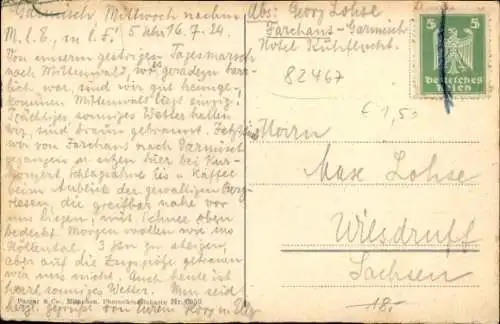 Garmisch, Mittwoch nachm.
M.l.E., m.l.F.! 5 Uhr 16.7.24.
Von unserem gestrigen Tagesmarsch
nach Mittenwald, wo es geradezu
lich war, sind wir gut heimge-
kommen. Mittenwald liegt einzig.
Prächtiges sonniges Wetter halten
wir, sind braun gebrannt. Jetzt sind
wir von Farchant nach Garmisch
gegangen u. sitzen hier bei Kur-
konzert, Schlagsahne Eis u. Kaffee
beim Anblick der gewaltigen Berg-
riesen, die greifbar nahe vor
uns liegen, mit Schnee oben
bedeckt. Morgen wollen wir ins
Höllental, 3 Std zu steigen,
aber auf die Zugspitze getrauen
wir uns nicht. Auch heute ist
sonniges Wetter. Nun seid
herzl. gegrüßt von Eurem Georg u. Elly
Abs: Georg Lohse
Farchant-Garmisch
Hotel Kuhflucht.
82467
€ 1,50
5 5
Deutsches
Reich
Herrn
Max Lohse
Wilsdruff
Sachsen
18.-
& Co., München,